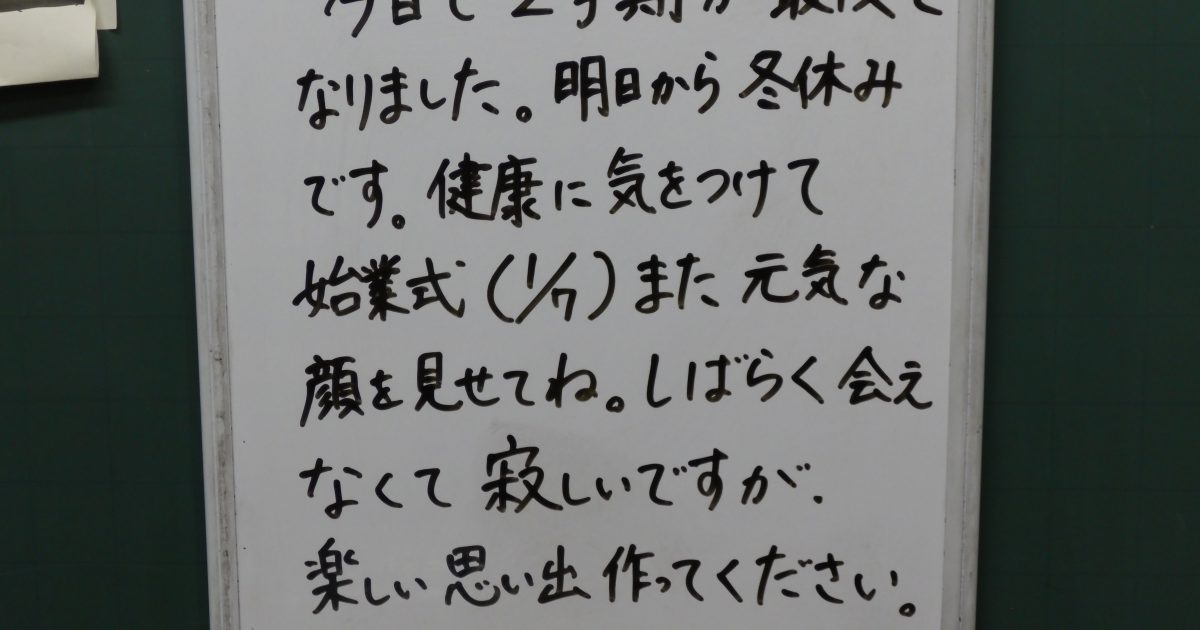 今日で2学期が最後と
なりました。明日から冬休み
です。健康に気をつけて
始業式(1/7)また元気な
顔を見せてね。しばらく会え
なくて寂しいですが、
楽しい思い出作ってください。